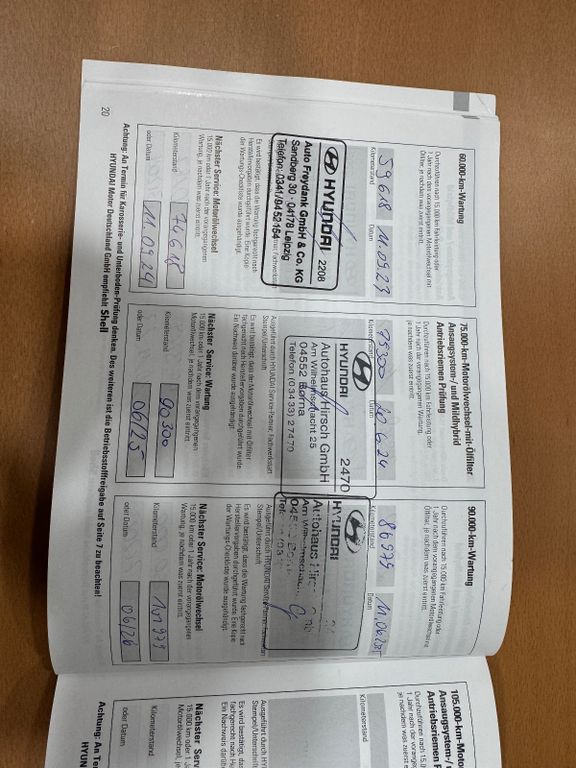 60.000-km-Wartung
Durchzuführen nach 15.000 km Fahrleistung oder
1 Jahr nach dem vorangegangenen Motorölwechsel mit
Ölfilter, je nachdem was zuerst eintritt.
59618
Kilometerstand
Datum
HYUNDAI 2208
Auto Freydank GmbH & Co. KG
Sandberg 30 · 04178 Leipzig
Telefon: 0341/9452154
Es wird bestätigt, dass die Wartung fachgerecht nach
Herstellervorgaben durchgeführt wurde. Eine Kopie
der Wartungs-Checkliste wurde ausgehändigt.
Nächster Service: Motorölwechsel
15.000 km oder 1 Jahr nach der vorangegangenen
Wartung, je nachdem was zuerst eintritt.
Kilometerstand
74618
oder Datum
11.09.24
75.000-km-Motorölwechsel-mit-Ölfilter
Ansaugsystem-/ und Mildhybrid
Antriebsriemen Prüfung
Durchzuführen nach 15.000 km Fahrleistung oder
1 Jahr nach der vorangegangenen Wartung,
je nachdem was zuerst eintritt.
75300
Kilometerstand
Datum
HYUNDAI 2470
Autohaus Hirsch GmbH
Am Wilhelmschacht 25
04552 Borna
Telefon (03433) 27470
Ausgeführt durch HYUNDAI Service-Partner, Fachwerkstatt
Stempel/Unterschrift
Es wird bestätigt, dass der Motorölwechsel mit Ölfilter
fachgerecht nach Herstellervorgaben durchgeführt wurde.
Ein Nachweis darüber wurde ausgehändigt.
Nächster Service: Wartung
15.000 km oder 1 Jahr nach dem vorangegangenen
Motorölwechsel, je nachdem was zuerst eintritt.
Kilometerstand
90300
oder Datum
06/25
90.000-km-Wartung
Durchzuführen nach 15.000 km Fahrleistung oder
1 Jahr nach dem vorangegangenen Motorölwechsel
Ölfilter, je nachdem was zuerst eintritt.
86979
Kilometerstand
Datum
HYUNDAI
Autohaus
Am Wilhelmschach
Ausgeführt durch HYUNDAI
Stempel/Unterschrift
Es wird bestätigt, dass die Wartung fachgerecht nach
Herstellervorgaben durchgeführt wurde. Eine Kopie
der Wartungs-Checkliste wurde ausgehändigt.
Nächster Service: Motorölwechsel
15.000 km oder 1 Jahr nach der vorangegangenen
Wartung, je nachdem was zuerst eintritt.
Kilometerstand
101979
oder Datum
06/26
Achtung: An Termin für Karosserie- und Unterboden-Prüfung denken. Des weiteren ist die Betriebsstofffreigabe auf Seite 7 zu beachten!
HYUNDAI Motor Deutschland GmbH empfiehlt Shell
20
105.000-km-Moto
Ansaugsystem-/
Antriebsriemen P
Durchzuführen nach 15.
1 Jahr nach der vorange
je nachdem was zuerst e
Kilometerstand
Ausgeführt durch HYU
Stempel/Unterschrift
Es wird bestätigt, das
fachgerecht nach He
Ein Nachweis darübe
Nächster Serv
15.000 km oder 1
Motorölwechsel, j
Kilometerstand
oder Datum
Achtung: An T
HYUN